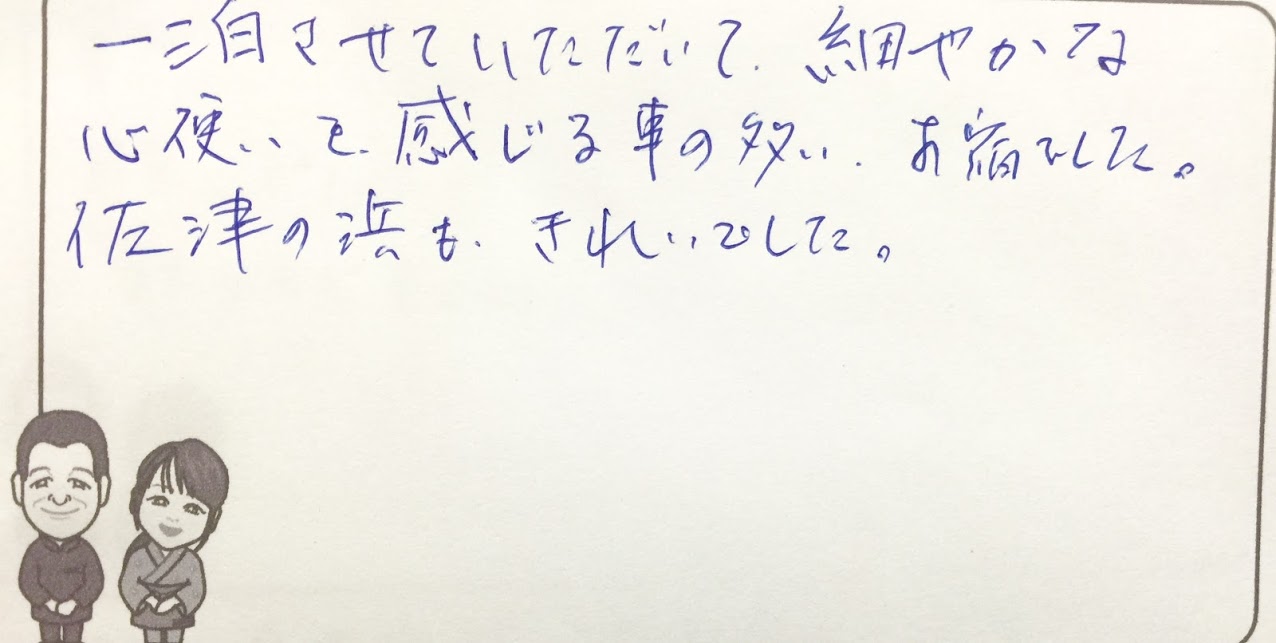 一泊させていただいて、細やかな
心使いを、感じる事の多い、お宿でした。
佐津の浜も、きれいでした。